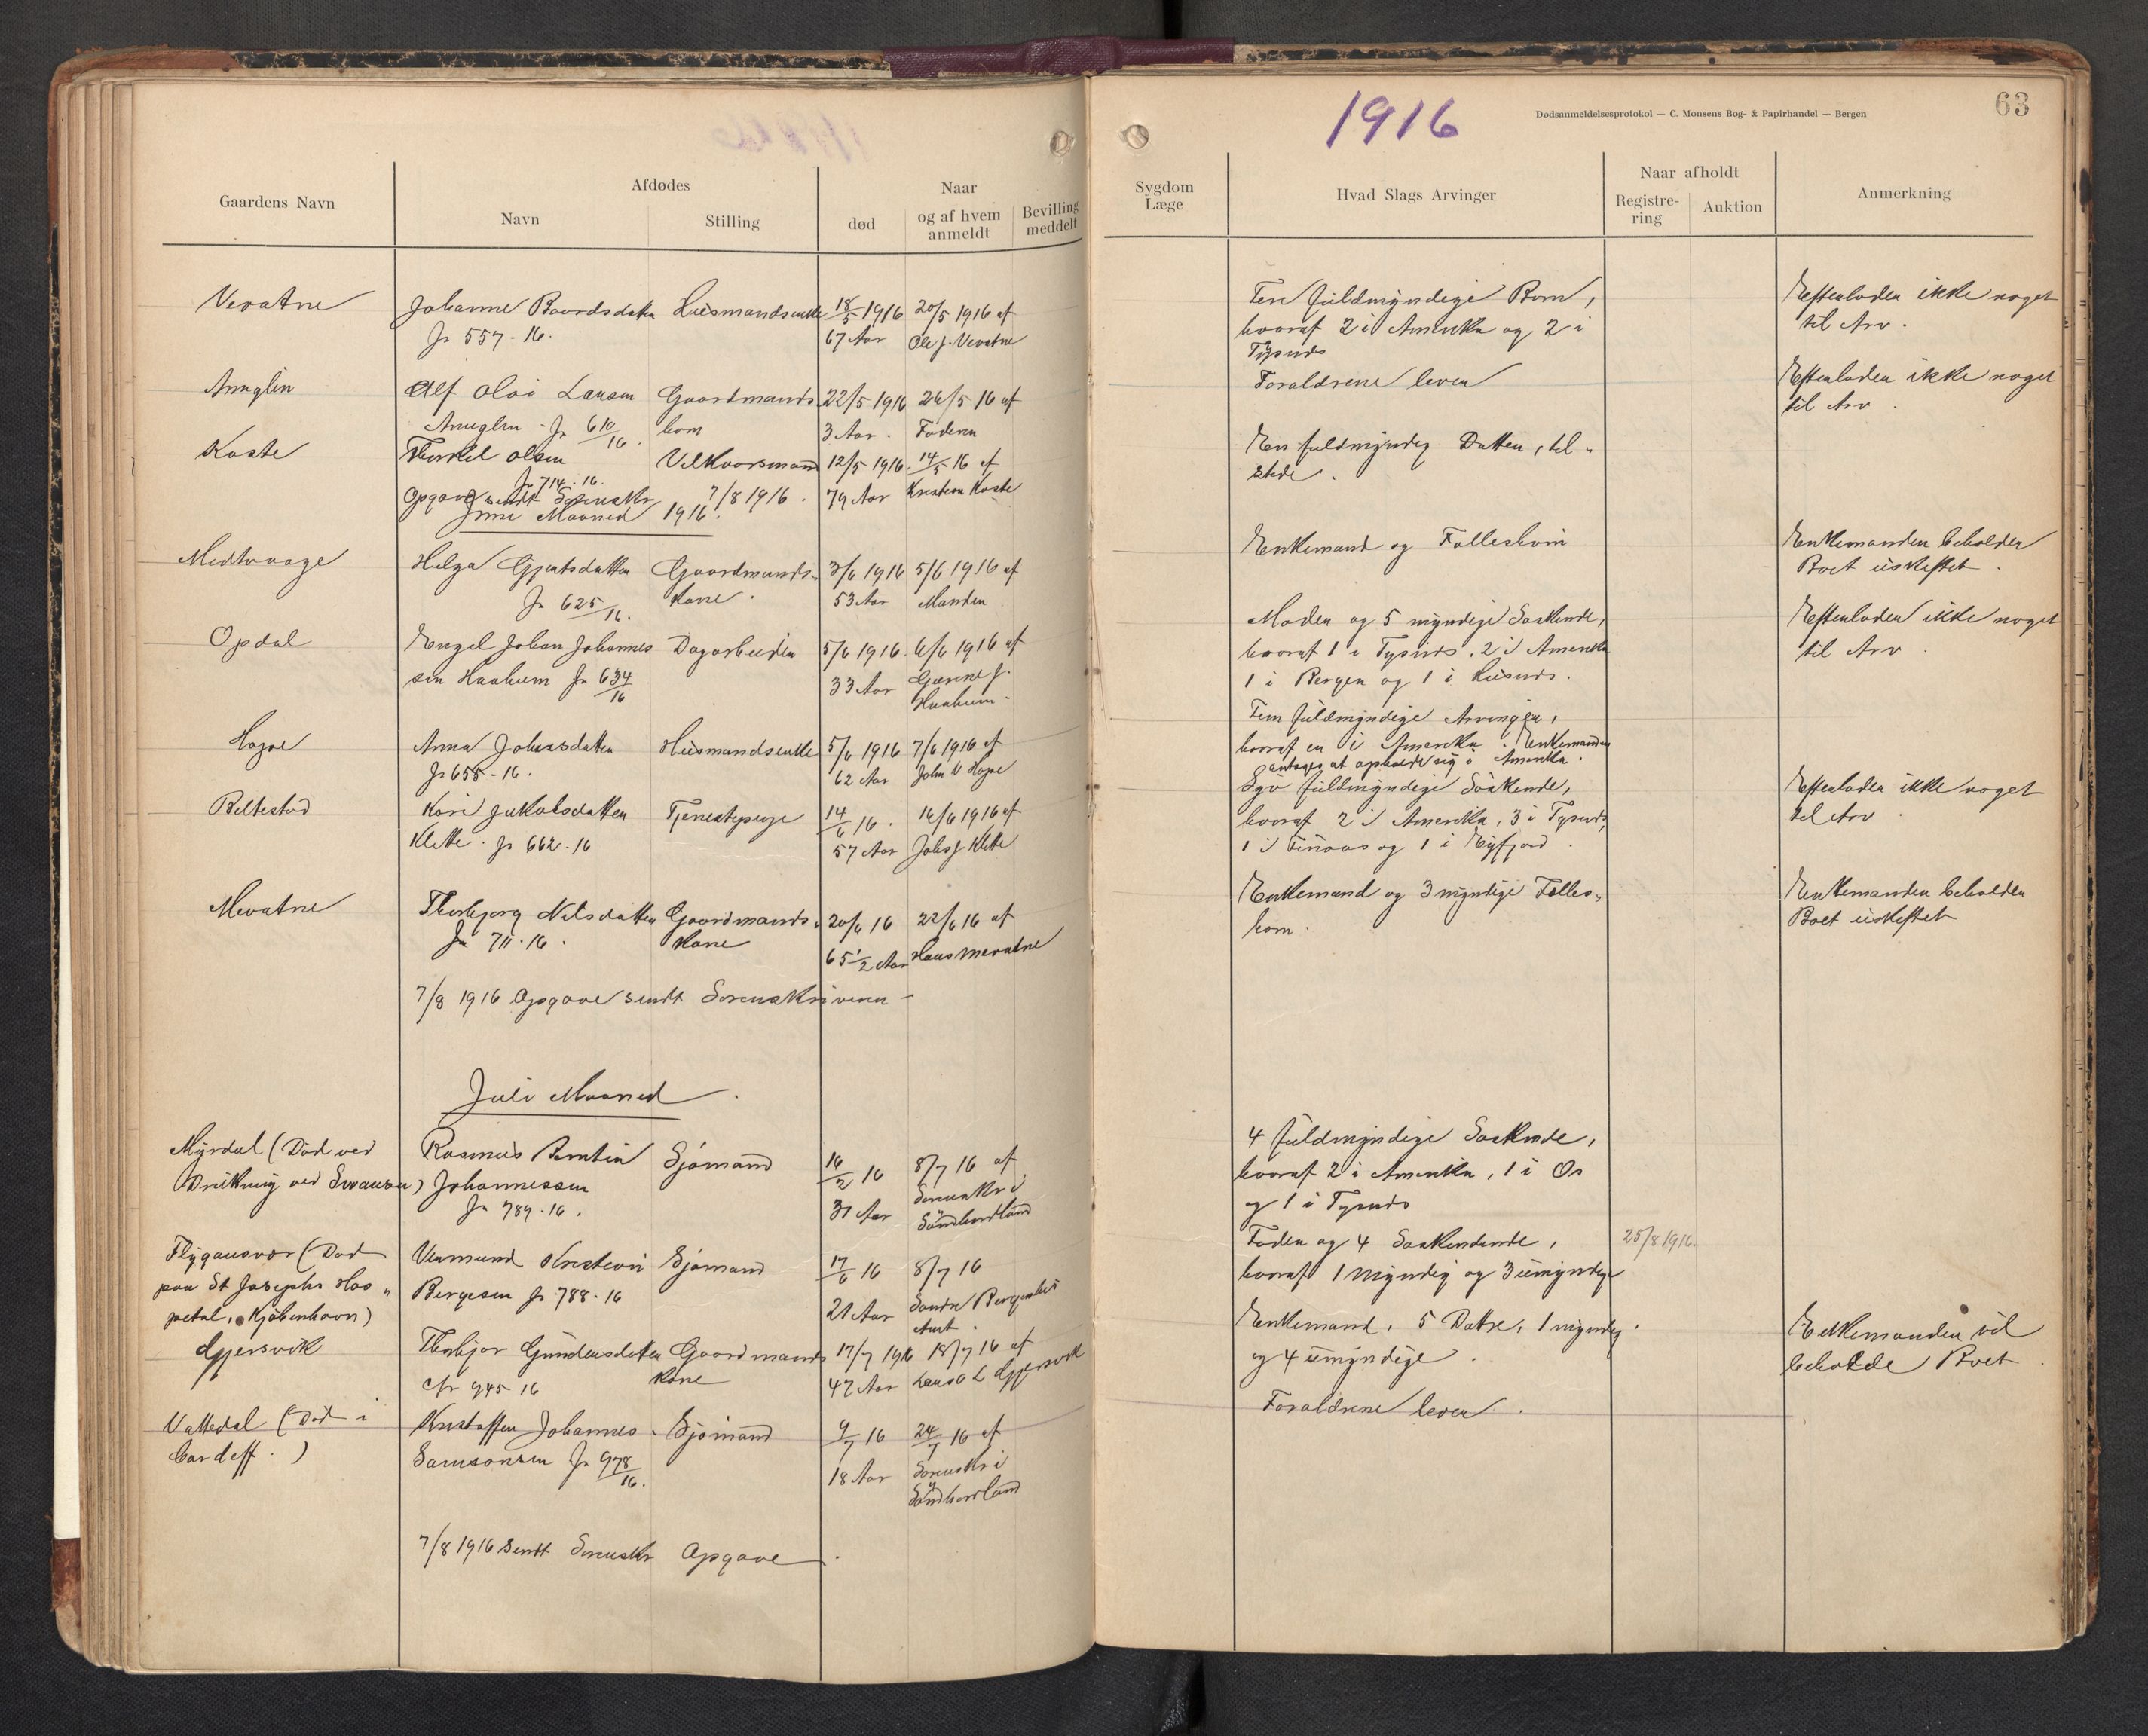 1916
Dødsanmeldelsesprotokol — C. Monsens Bog- & Papirhandel — Bergen
63
Gaardens Navn
Afdødes
Navn
Stilling
Naar
død
og af hvem
anmeldt
Bevilling
meddelt
Sygdom
Læge
Hvad Slags Arvinger
Naar afholdt
Registre-
ring
Auktion
Anmerkning
Vevatne
Johanne Baardsdatter
Jr 557-16.
Husmandsenke
18/5 1916
67 Aar
20/5 1916 af
Ole J. Vevatne
fuldmyndige Børn,
hvoraf 2 i Amerika og 2 i
Tysnes
Efterlader ikke noget
til Arv.
Amuglen
Alf Olai Larsen
Amuglen - Jr 610/16.
Gaardmands
barn
22/5 1916
3 Aar.
26/5 16 af
Faderen
Forældrene lever
Efterlader ikke noget
til Arv.
Kaste
Thorkel Olsen
Jr 714-16.
Velkaarsmand
12/5 1916.
79 Aar
14/5 16 af
Kristian Kaste
En fuldmyndig Datter, til-
stede.
Opgave sendt Sorenskr 7/8 1916.
Juni Maaned 1916.
Medvaage
Helga Gjertsdatter
Jr 625/16.
Gaardmands-
kone.
3/6 1916
53 Aar
5/6 1916 af
Manden
Enkemand og Fællesbørn
Enkemanden beholder
Boet uskiftet.
Opdal
Engel Johan Johannes
sen Haaheim Jr 634/16
Dagarbeider
5/6 1916.
33 Aar
6/6 1916 af
J.
Haaheim -
Moder og 5 myndige Søskende,
hvoraf 1 i Tysnes, 2 i Amerika
1 i Bergen og 1 i Kusnes.
Efterlader ikke noget
til Arv.
Hope
Anna Johansdatter
Jr 658-16.
Husmandsenke
5/6 1916
62 Aar
7/6 1916 af
John Hope
Fem fuldmyndige Arvinger,
hvoraf en i Amerika. Enkemanden
antages at opholde sig i Amerika.
Beltestad
Kari Jakobsdatter
Klette. Jr 662-16
Tjenestepige
14/6 16.
57 Aar
16/6 1916 af
Johs J Klette
Syv fuldmyndige Søskende,
hvoraf 2 i Amerika, 3 i Tysnes,
1 i Finaas og 1 i Eyfjord.
Efterlader ikke noget
til Arv.
Mevatne
Thorbjørg Nilsdatter
Jr 711-16.
Gaardmands-
kone
20/6 16
65 1/2 Aar
22/6 16 af
Hans Mevatne
Enkemand og 3 myndige Fælles-
børn.
Enkemanden beholder
Boet uskiftet
7/8 1916 Opgave sendt Sorenskriveren -
Juli Maaned.
Myrdal (Død ved
Drukning ved Swansea)
Rasmus Bentin
Johannessen
Jr 789-16.
Sjømand
16/2 16
31 Aar
8/7 16 af
Sorenskr i
Søndhordland
4 fuldmyndige Søskende,
hvoraf 2 i Amerika, 1 i Os
og 1 i Tysnes
Flygansvær (Død
paa St Josephs Hos-
petal, Kjøbenhavn)
Vermund Kristian
Bergesen Jr 788-16
Sjømand
17/6 16
21 Aar
8/7 16
Søndre Bergenhus
Amt.
Fader og 4 Søskendende,
hvoraf 1 myndig og 3 umyndige
25/8 1916.
Gjersvik
Thorbjør Gundersdatter
Jr 945 16
Gaardmands
kone
17/7 1916
47 Aar
18/7 16 af
Lars O L Gjersvik
Enkemand, 5 Døtre, 1 myndig.
og 4 umyndige.
Enkemanden vil
beholde Boet.
Vattedal (Død i
Cardeff.)
Kristoffer Johannes
Samsonsen Jr 978/16.
Sjømand
9/7 16
18 Aar
24/7 16 af
Sorenskr i
Søndhordland
Forældrene lever.
7/8 1916 Sendt Sorenskr Opgave.